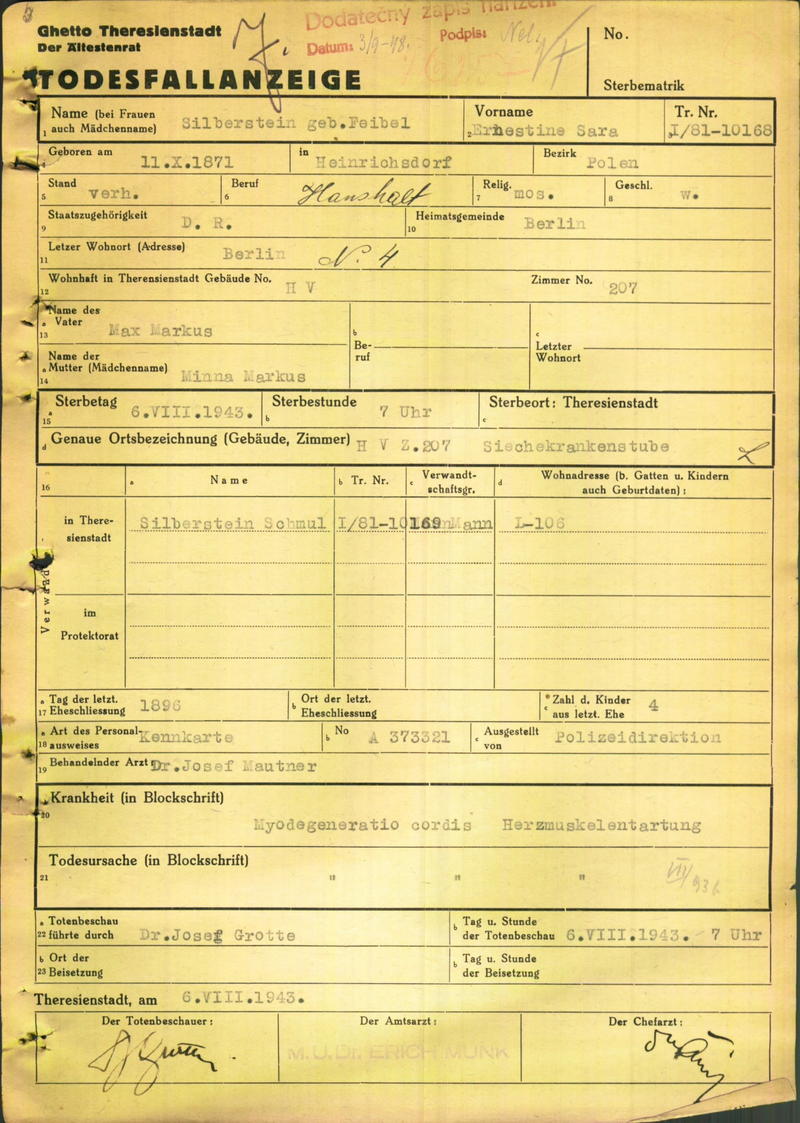 Ghetto Theresienstadt
Der Ältestenrat
Dodatečný zápis nařízen
Datum: 3/9-48. Podpis:
No.
TODESFALLANZEIGE
Sterbematrik
Name (bei Frauen
1 auch Mädchenname) Silberstein geb.Feibel
Vorname
2 Ernestine Sara
Tr. Nr.
3 I/81-10168
Geboren am
4 11.X.1871
in
Heinrichsdorf
Bezirk
Polen
Stand
5 verh.
Beruf
6 Haushalt
Relig.
7 mos.
Geschl.
8 w.
Staatszugehörigkeit
9 D. R.
Heimatsgemeinde
10 Berlin
Letzer Wohnort (Adresse)
11 Berlin N. 4
Wohnhaft in Theresienstadt Gebäude No.
12 H V
Zimmer No. 207
Name des
a Vater
13 Max Markus
b
Be-
ruf
c
Letzter
Wohnort
Name der
a Mutter (Mädchenname)
14 Minna Markus
a Sterbetag
15 6.VIII.1943.
Sterbestunde
b 7 Uhr
Sterbeort: Theresienstadt
c
d Genaue Ortsbezeichnung (Gebäude, Zimmer) H V Z.207 Siechekrankenstube
16
a Name
b Tr. Nr.
c Verwandt-
schaftsgr.
d Wohnadresse (b. Gatten u. Kindern
auch Geburtdaten):
Verwandte
in There-
sienstadt
Silberstein Schmul I/81-10169 Mann L-106
im
Protektorat
a Tag der letzt.
17 Eheschliessung 1896
b Ort der letzt.
Eheschliessung
* Zahl d. Kinder
c aus letzt. Ehe 4
a Art des Personal-
18 ausweises Kennkarte
b No A 373321
c Ausgestellt
von Polizeidirektion
19 Behandelnder Arzt Dr.Josef Mautner
Krankheit (in Blockschrift)
20
Myodegeneratio cordis Herzmuskelentartung
Todesursache (in Blockschrift)
21 " " "
a Totenbeschau
22 führte durch Dr.Josef Grotte
b Tag u. Stunde
der Totenbeschau 6.VIII.1943. 7 Uhr
b Ort der
23 Beisetzung
b Tag u. Stunde
der Beisetzung
Theresienstadt, am 6.VIII.1943.
Der Totenbeschauer:
Der Amtsarzt:
Der Chefarzt:
M.U.Dr. ERICH MUNK